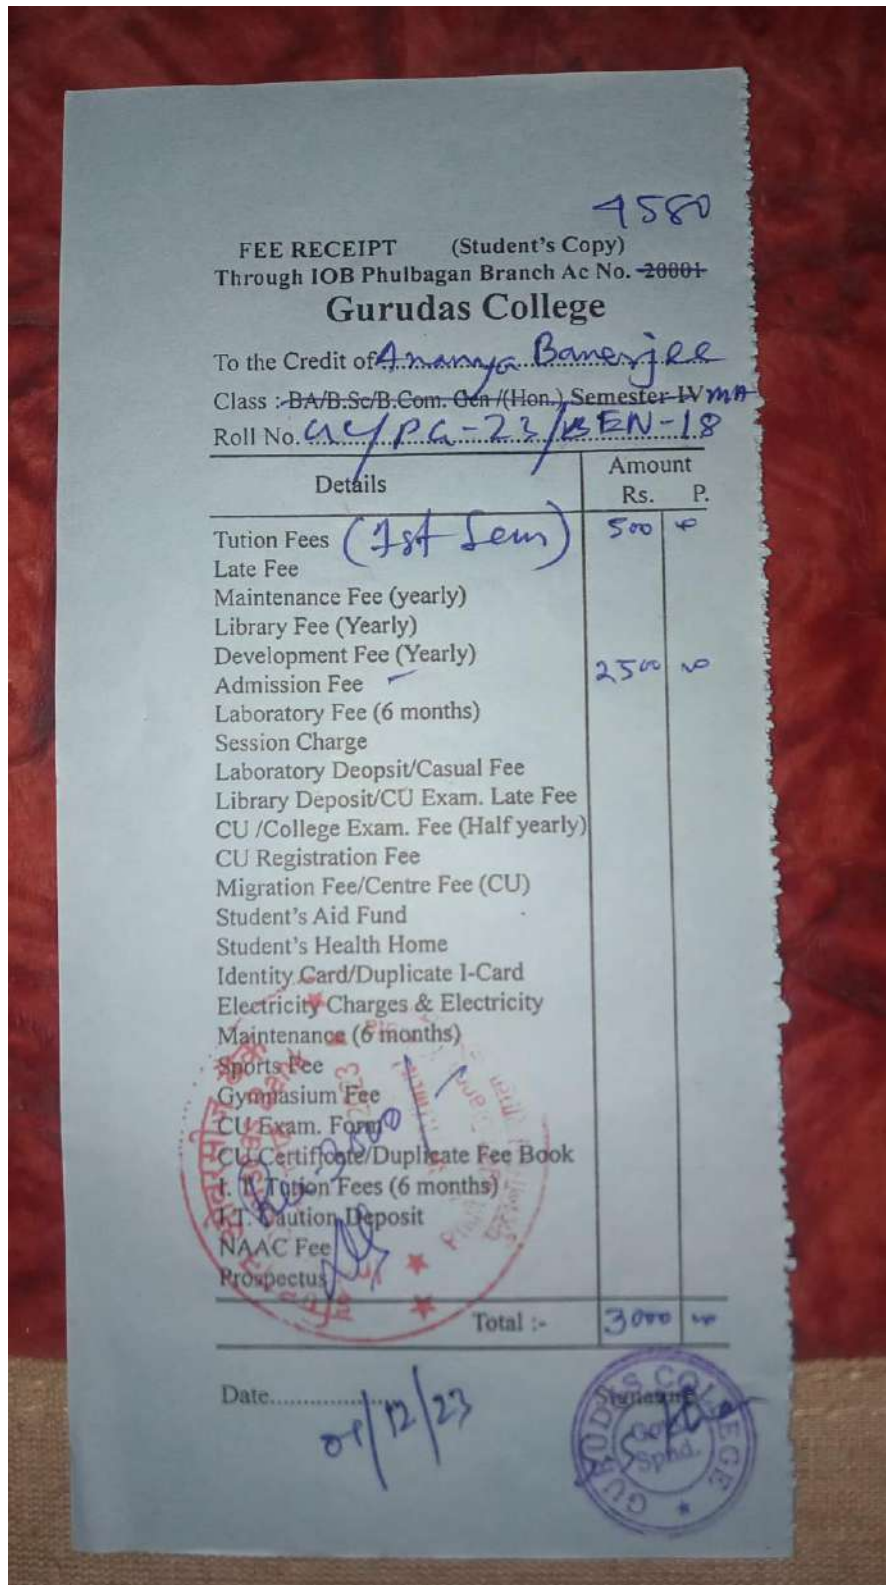 4580
FEE RECEIPT (Student's Copy)
Through IOB Phulbagan Branch Ac No. 20001
Gurudas College
To the Credit of Ananya Banerjee
Class : BA/B.Sc/B.Com. Gen /(Hon.) Semester-IV MA
Roll No. GC/PG-23/BEN-18
Details Amount
Rs. P.
Tution Fees (1st Sem) 500 00
Late Fee
Maintenance Fee (yearly)
Library Fee (Yearly)
Development Fee (Yearly)
Admission Fee 2500 00
Laboratory Fee (6 months)
Session Charge
Laboratory Deopsit/Casual Fee
Library Deposit/CU Exam. Late Fee
CU /College Exam. Fee (Half yearly)
CU Registration Fee
Migration Fee/Centre Fee (CU)
Student's Aid Fund
Student's Health Home
Identity Card/Duplicate I-Card
Electricity Charges & Electricity
Maintenance (6 months)
Sports Fee
Gymnasium Fee
CU Exam. Form
CU Certificate/Duplicate Fee Book
I. T. Tution Fees (6 months)
I.T. Caution Deposit
NAAC Fee
Prospectus
Total :- 3000 00
Date.....................
01/12/23
Signature
GURUDAS COLLEGE